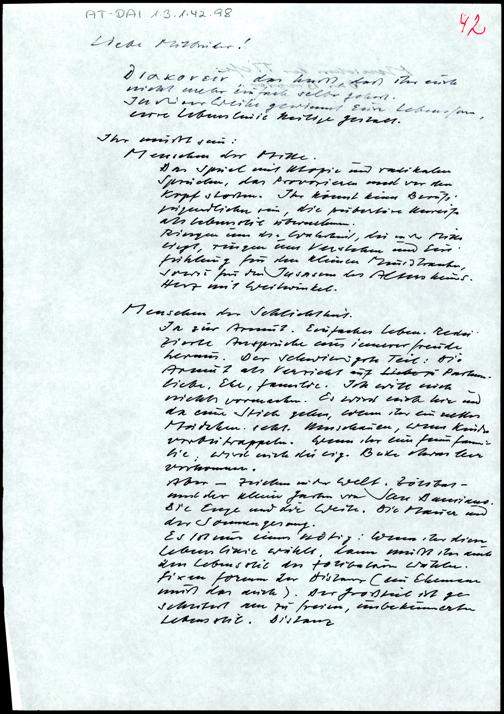 AT-DAI 1.3.1.42.98
42
Liebe Mitbrüder!
Diakonweihe das heißt, daß ihr euch
nicht mehr einfach selbst gehört.
In dieser Weihe gewinnt Eure Lebensform,
eure Lebenslinie heilige Gestalt.
Ihr müßt sein:
Menschen der Mitte.
Das Spiel mit Utopie und radikalen
Sprüchen, das Provozieren und vor den
Kopf stoßen. Ihr könnt keine Berufs-
jugendlichen sein, die pubertäre Unreife
als Lebensstil
Ringen um die Wahrheit, die in der Mitte
liegt, ringen um Verstehen und Ein-
fühlung für den kleinen Ministranten,
sowie für den Insassen des Altersheims.
Herz mit Weitwinkel.
Menschen der Schlichtheit.
Ja zur Armut. Einfaches Leben. Redu-
zierte Ansprüche aus innerer Freude
heraus. Der schwierigste Teil: Die
Armut als Verzicht auf Partner-
liebe, Ehe, Familie. Ich will euch
nichts vormachen. Es wird euch hie und
da einen Stich geben, wenn ihr ein nettes
Mädchen seht. Umschauen, wenn Kinder
vorbeitrappeln. Wenn ihr eine feine Fami-
lie, wird euch die eig. Bude etwas leer
vorkommen.
Aber – Zeichen in der Welt. Zölibat –
und der kleine Garten von San Damiano.
Die Enge und die Weite. Die Mauer und
der Sonnengesang.
Es ist nur eines nötig: Wenn ihr diese
Lebenslinie wählt, dann müßt ihr auch
den Lebensstil des Zölibatären wählen.
Fixen Formen der Distanz (ein Ehemann
muß das auch). Der Großteil ist ge-
scheitert am zu freien, unbekümmerten
Lebensstil. Distanz